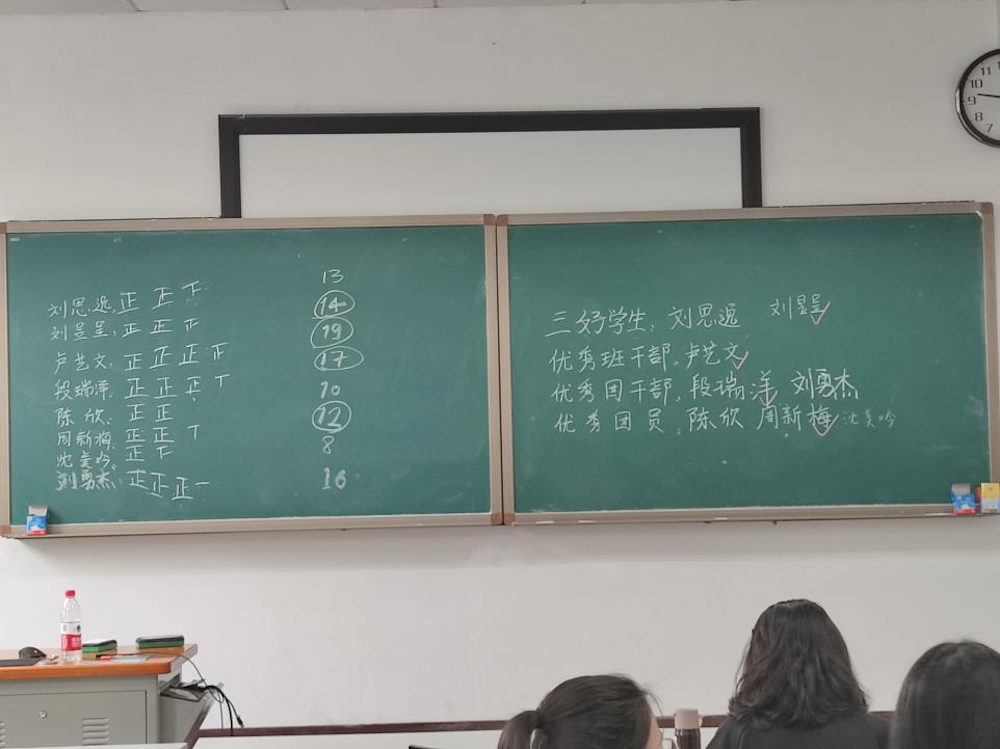 刘思逸, 正 正 下 13
刘昱呈, 正 正 正 14
卢艺文, 正 正 正 正 19
段瑞洋, 正 正 正 丅 17
陈欣, 正 正 10
周新梅, 正 正 丅 12
沈美吟, 正 下 8
刘勇杰, 正 正 正 一 16
三好学生: 刘思逸 刘昱呈
优秀班干部, 卢艺文
优秀团干部, 段瑞洋 刘勇杰
优秀团员: 陈欣 周新梅 沈美吟
10
11
9
8
7